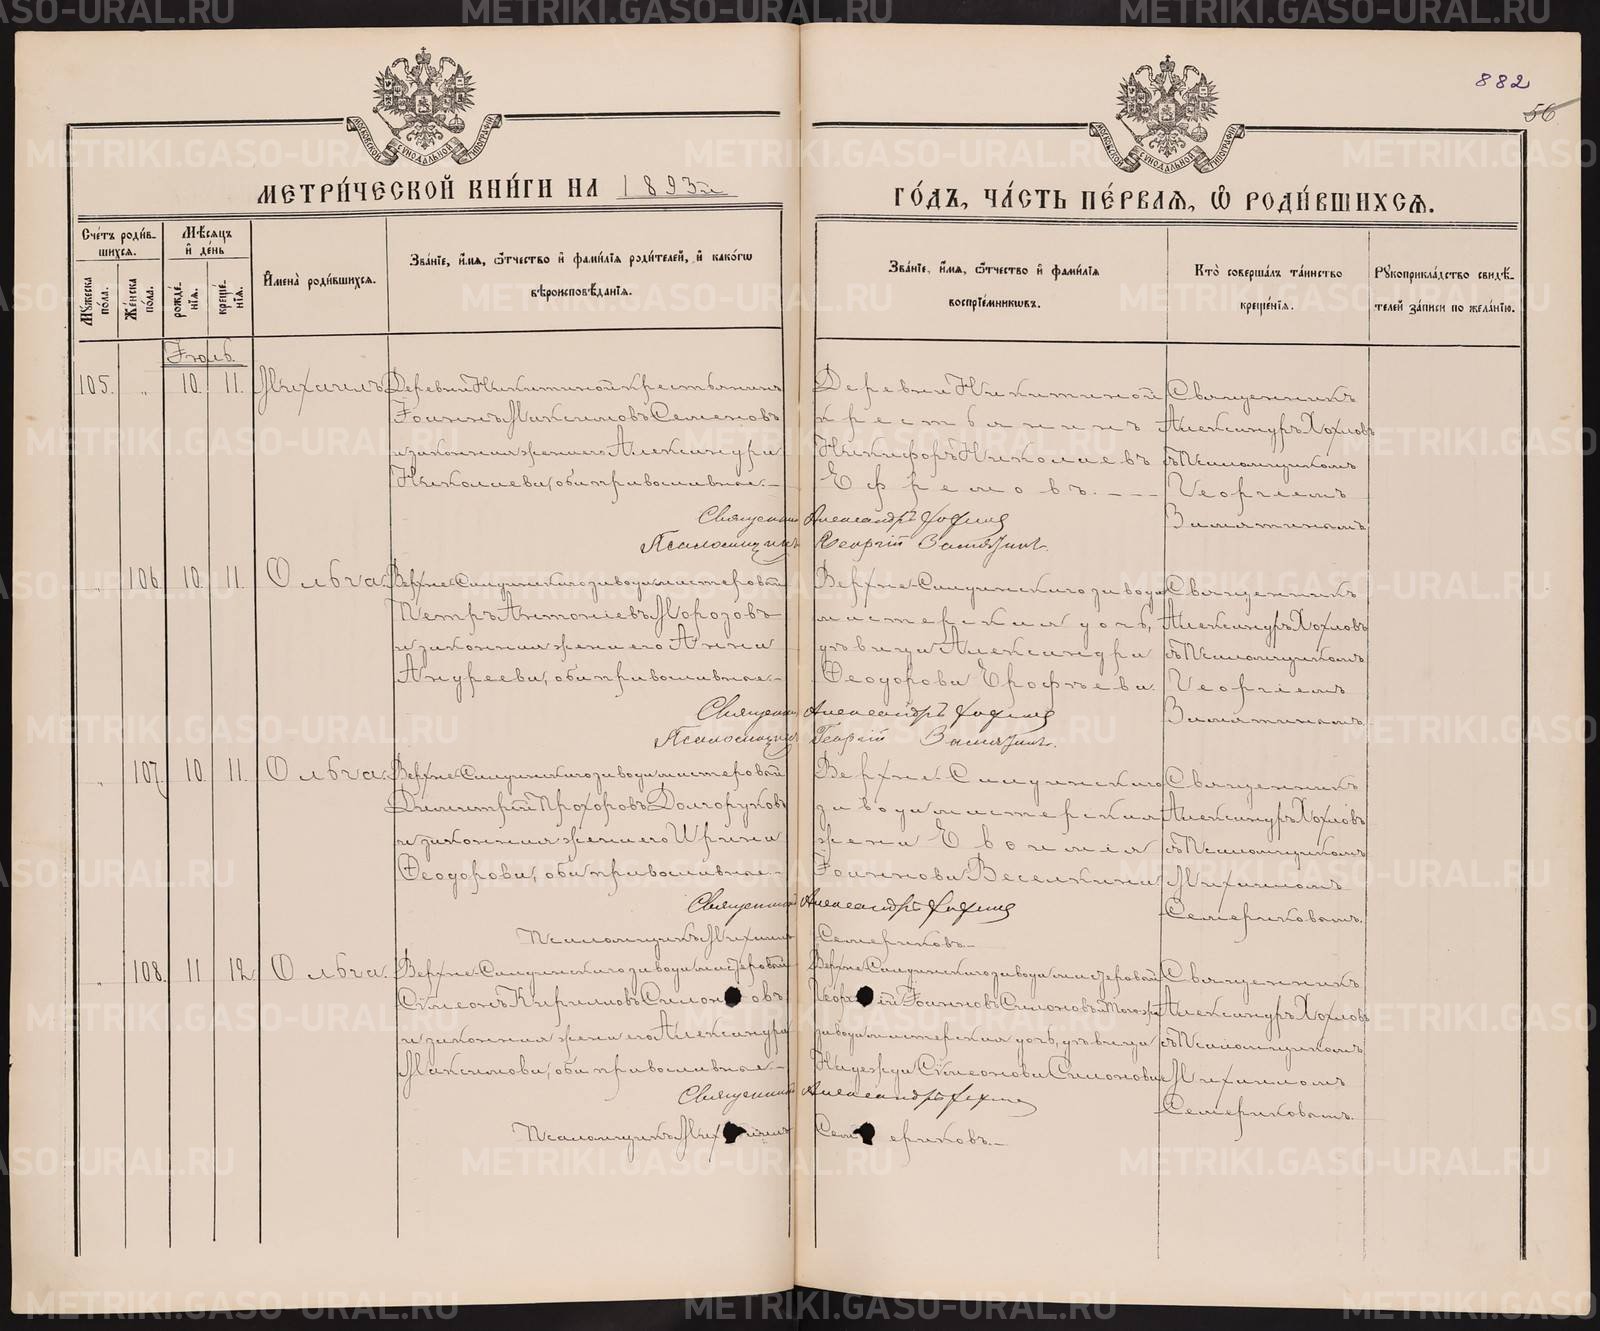 882
56
МОСКОВСКОЙ СѴНОДАЛЬНОЙ ТИПОГРАФІИ
МОСКОВСКОЙ СѴНОДАЛЬНОЙ ТИПОГРАФІИ
МЕТРИ́ЧЕСКОЙ КНИ́ГИ НА 1893й
ГО́ДЪ, ЧА́СТЬ ПЕ́РВАѦ, Ѡ҆ РОДИ́ВШИХСѦ.
Сче́тъ роди́в-
шихсѧ.
Мꙋ́жеска по́ла.
Же́нска по́ла.
Мѣ́сѧцъ
и҆ де́нь
рожде́-
нїѧ.
креще́-
нїѧ.
И҆мена̀ роди́вшихсѧ.
Зва́нїе, и҆́мѧ, ѻ҆́тчество и҆ фами́лїѧ роди́телей, и҆ како́гѡ
вѣроисповѣ́данїѧ.
Зва́нїе, и҆́мѧ, ѻ҆́тчество и҆ фами́лїѧ
воспрїе́мникѡвъ.
Кто̀ соверша́лъ та́инство
креще́нїѧ.
Рꙋкоприкла́дство свидѣ́-
телей за́писи по жела́нїю.
Іюль.
105. „ 10. 11. Михаилъ
Деревни Никитиной крестьянинъ
Іоаннъ Максимовъ Семеновъ
и законная жена его Александра
Николаева, оба православные.—
Деревни Никитиной
крестьянинъ
Никифоръ Николаевъ
Ефремовъ.---
Священникъ
Александръ Хохловъ
съ Псаломщикомъ
Георгіемъ
Замятинымъ
Священникъ Александръ Хохловъ
Псаломщикъ Георгій Замятинъ.
„ 106. 10. 11. Ольга.
Верхне-Салдинскаго завода мастеровой
Петръ Антоніевъ Морозовъ
и законная жена его Анна
Андреева, оба православные.—
Верхне-Салдинскаго завода
мастерская дочь,
дѣвица Александра
Ѳеодорова Ерофѣева.
Священникъ
Александръ Хохловъ
съ Псаломщикомъ
Георгіемъ
Замятинымъ.
Священникъ Александръ Хохловъ
Псаломщикъ Георгій Замятинъ.
„ 107. 10. 11. Ольга.
Верхне-Салдинскаго завода мастеровой
Димитрій Прохоровъ Долгоруковъ
и законная жена его Ирина
Ѳеодорова, оба православные.—
Верхне-Салдинскаго
завода мастерская
жена Евѳимія
Іоаннова Веселкина
Священникъ
Александръ Хохловъ
съ Псаломщикомъ
Михаиломъ
Семериковымъ.
Священникъ Александръ Хохловъ
Псаломщикъ Михаилъ Семериковъ.—
„ 108. 11 12. Ольга.
Верхне-Салдинскаго завода мастеровой
Сѵмеонъ Кирилловъ Симоновъ
и законная жена его Александра
Максимова, оба православные.—
Верхне-Салдинскаго завода мастеровой
Георгій Іоанновъ Симоновъ и того же
завода мастерская дочь, дѣвица
Надежда Сѵмеонова Симонова
Священникъ
Александръ Хохловъ
съ Псаломщикомъ
Михаиломъ
Семериковымъ.
Священникъ Александръ Хохловъ
Псаломщикъ Михаилъ Семериковъ.—
METRIKI.GASO-URAL.RU